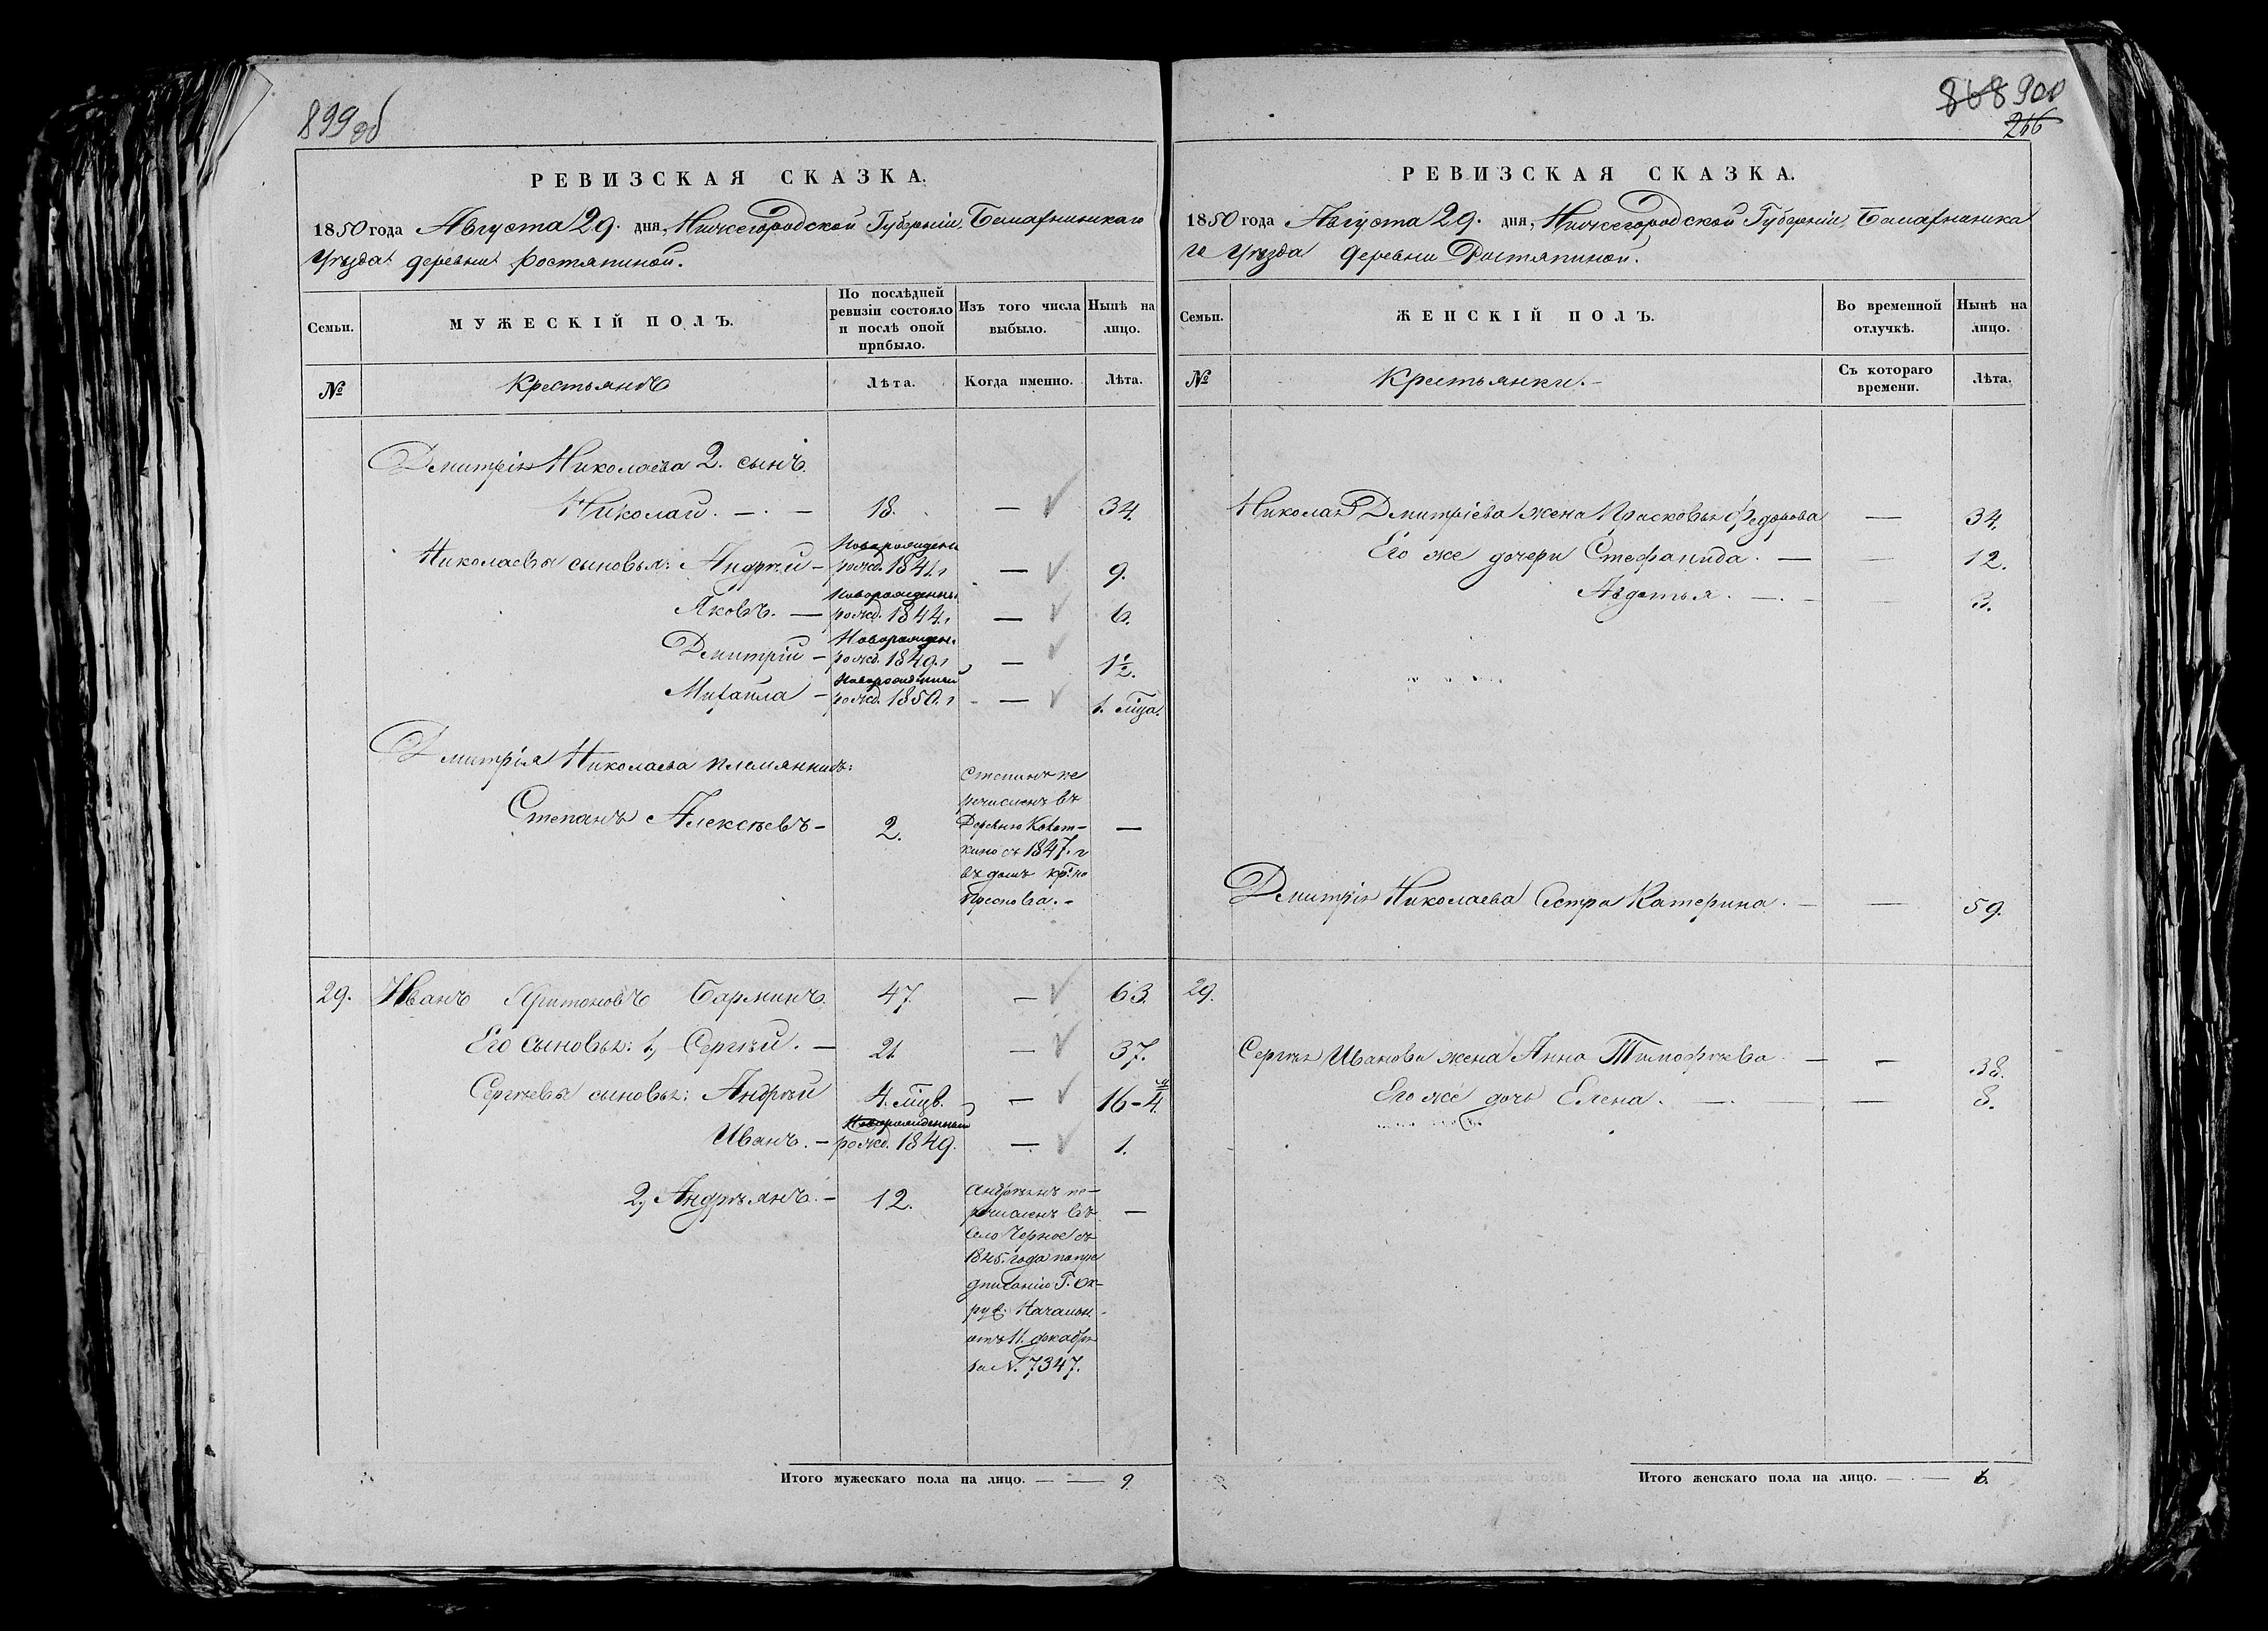 899 об
РЕВИЗСКАЯ СКАЗКА.
1850 года Августа 29. дня, Нижегородской Губерніи, Балахнинскаго
Уѣзда деревни Ростяпиной.
Семьи.
МУЖЕСКІЙ ПОЛЪ.
По послѣдней
ревизіи состояло
и послѣ оной
прибыло.
Изъ того числа
выбыло.
Нынѣ на
лицо.
№
Крестьянъ
Лѣта.
Когда именно.
Лѣта.
Дмитрія Николаева 2. сынъ.
Николай. — 18. — 34.
Николаевы сыновья: Андрей — Новорожден рожд. 1841. г — 9.
Яковъ. — Новорожденны рожд. 1844. г — 6.
Дмитрій — Новорожден. рожд. 1849. г — 1½.
Михаила — Новорожденный рожд. 1850. г — 1. мѣца.
Дмитрія Николаева племянникъ:
Степанъ Алексѣевъ — 2. —
Степанъ пе
речисленъ въ
Деревню
кино съ 1847. г
въ домъ
29. Иванъ Харитоновъ Бармикъ. 47 — 63.
Его сыновья: 1, Сергѣй. — 21 — 37.
Сергѣевы сыновья: Андрей 4. мѣцв. — 16-4.
Иванъ. — Новорожденный рожд. 1849. — 1.
2, Андрѣянъ. — 12. —
Андрѣянъ пе-
речисленъ въ
село Черное съ
1845. года по пре
дписанію Г. Ок-
руж. Начальн.
отъ 11. декабря
за N. 7347.
Итого мужескаго пола на лицо. — — 9.
868 900
266
РЕВИЗСКАЯ СКАЗКА.
1850 года Августа 29. дня, Нижегородской Губерніи, Балахнинска
го Уѣзда деревни Ростяпиной.
Семьи.
ЖЕНСКІЙ ПОЛЪ.
Во временной
отлучкѣ.
Нынѣ на
лицо.
№
Крестьянки. —
Съ котораго
времени.
Лѣта.
Николая Дмитріева жена Прасковья Федорова — 34.
Его же дочери Стефанида. — — 12.
Авдотья. — — 3.
Дмитрія Николаева Сестра Катерина. — — 59.
29.
Сергѣя Иванова жена Анна Тимофѣева — — 38.
Его же дочь Елена. — — 8.
Итого женскаго пола на лицо. — — 6.